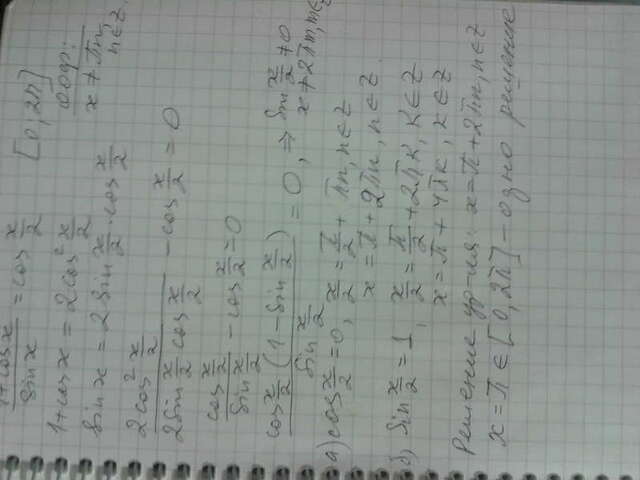 (1+cos x)/sin x = cos x/2 [0, 2π]
1+cos x = 2cos² x/2 ООФ:
sin x = 2 sin x/2 · cos x/2 x ≠ πn, n∈Z.
2cos² x/2 / 2sin x/2 cos x/2 - cos x/2 = 0
cos x/2 / sin x/2 - cos x/2 = 0
cos x/2 (1 - sin x/2) / sin x/2 = 0, ⇒ sin x/2 ≠ 0
x ≠ 2πm, m∈Z
а) cos x/2 = 0, x/2 = π/2 + πn, n∈Z
x = π + 2πn, n∈Z.
б) sin x/2 = 1, x/2 = π/2 + 2πk, k∈Z
x = π + 4πk, k∈Z
Решение ур-ия: x = π + 2πn, n∈Z
x = π ∈ [0, 2π] - одно решение